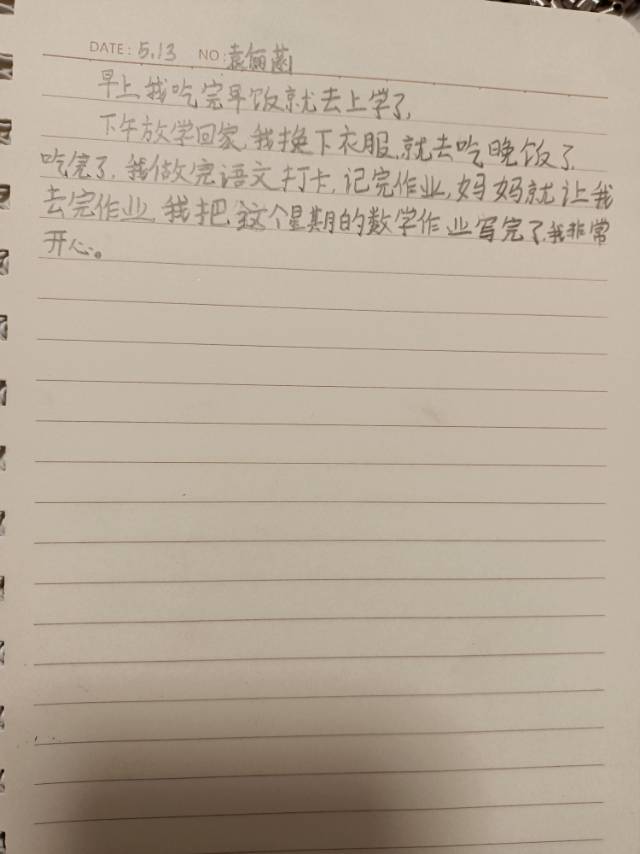 DATE: 5.13 NO: 袁俪菡
早上,我吃完早饭,就去上学了,
下午放学回家,我换下衣服,就去吃晚饭了,
吃完了,我做完语文打卡,记完作业,妈妈就让我
去完作业,我把这个星期的数学作业写完了,我非常
开心。